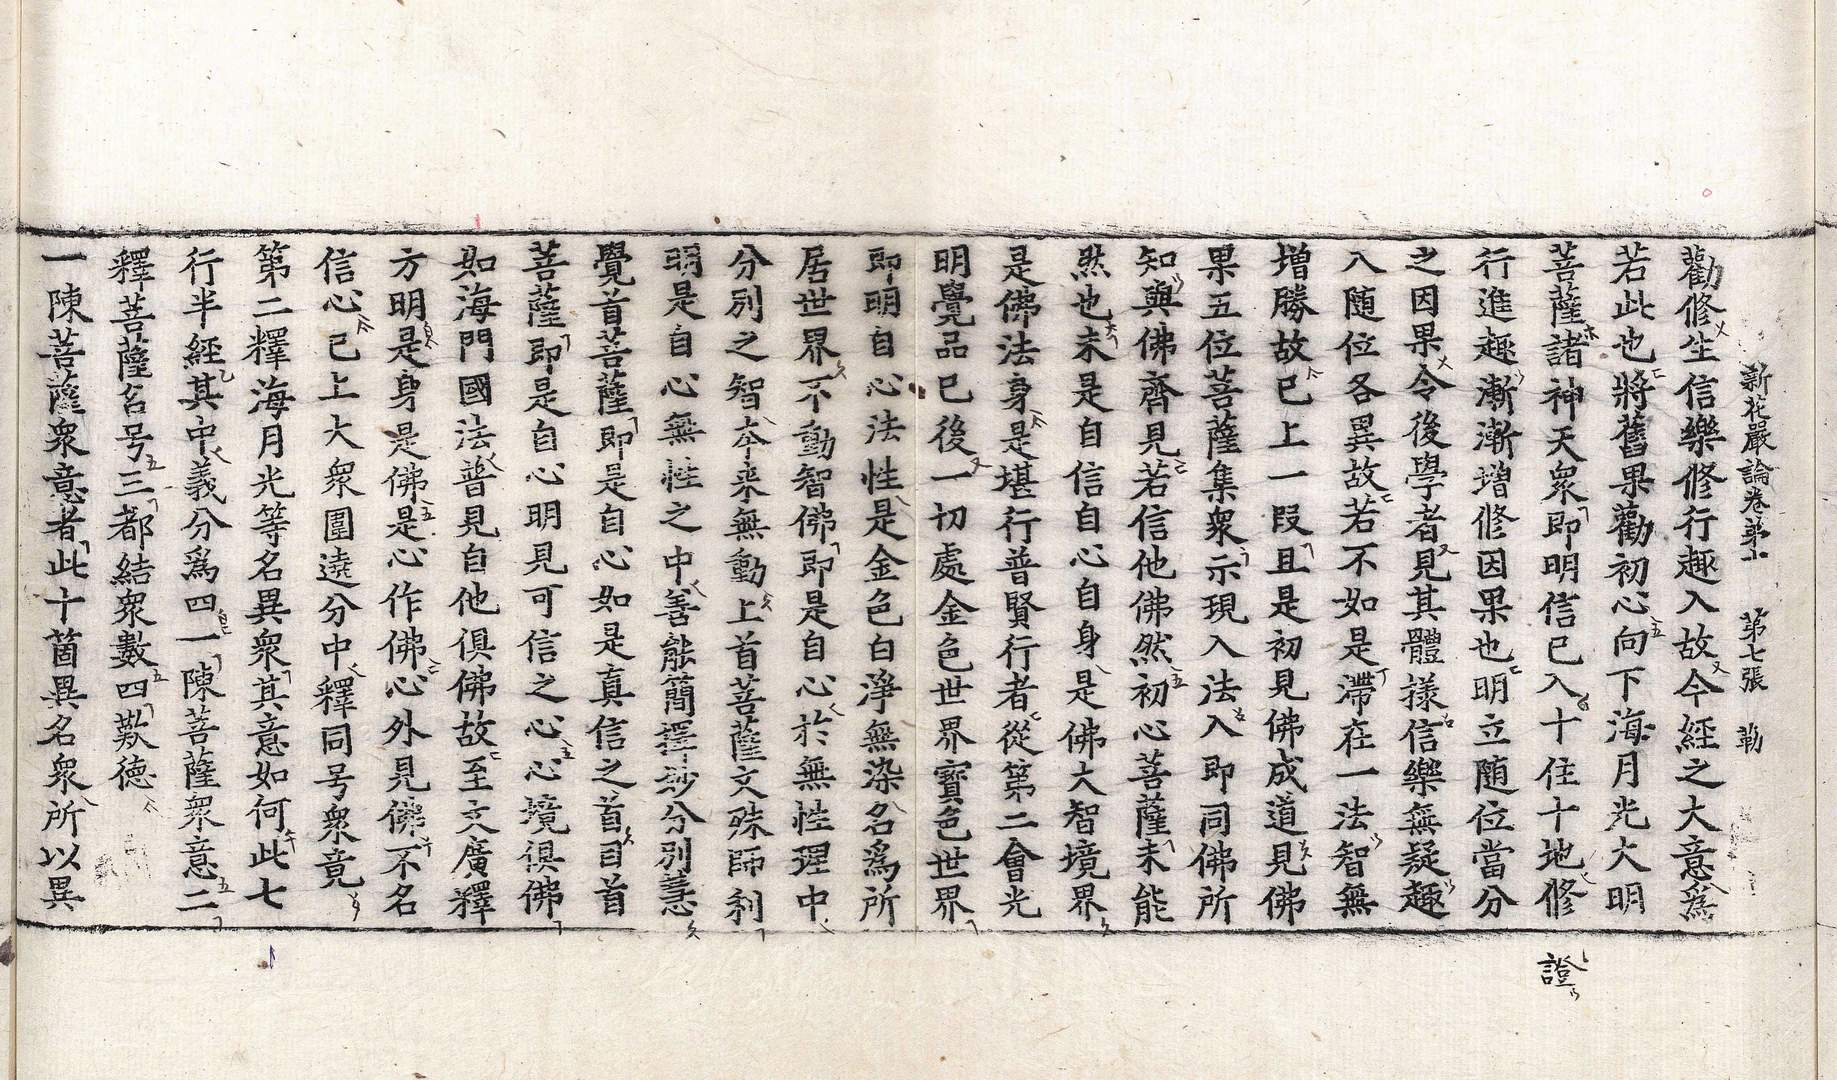 新花嚴論卷第十 第七張 勒
勸修生信樂修行趣入故今經之大意爲
若此也將舊果勸初心向下海月光大明
菩薩諸神天衆即明信已入十住十地修
證
行進趣漸漸增修因果也明立隨位當分
之因果令後學者見其體樣信樂無疑趣
入隨位各異故若不如是滯在一法智無
增勝故已上一段且是初見佛成道見佛
果五位菩薩集衆示現入法入即同佛所
知與佛齊見若信他佛然初心菩薩未能
然也未是自信自心自身是佛大智境界
是佛法身是堪行普賢行者從第二會光
明覺品已後一切處金色世界寶色世界
即明自心法性是金色白淨無染名爲所
居世界不動智佛即是自心於無性理中
分別之智本来無動上首菩薩文殊師利
明是自心無性之中善能簡擇妙分別慧
覺首菩薩即是自心如是真信之首目首
菩薩即是自心明見可信之心心境俱佛
如海門國法普見自他俱佛故至文廣釋
方明是身是佛是心作佛心外見佛不名
信心已上大衆圍遶分中釋同号衆竟
第二釋海月光等名異衆其意如何此七
行半經其中義分爲四一陳菩薩衆意二
釋菩薩名号三都結衆數四歎德
一陳菩薩衆意者此十箇異名衆所以異